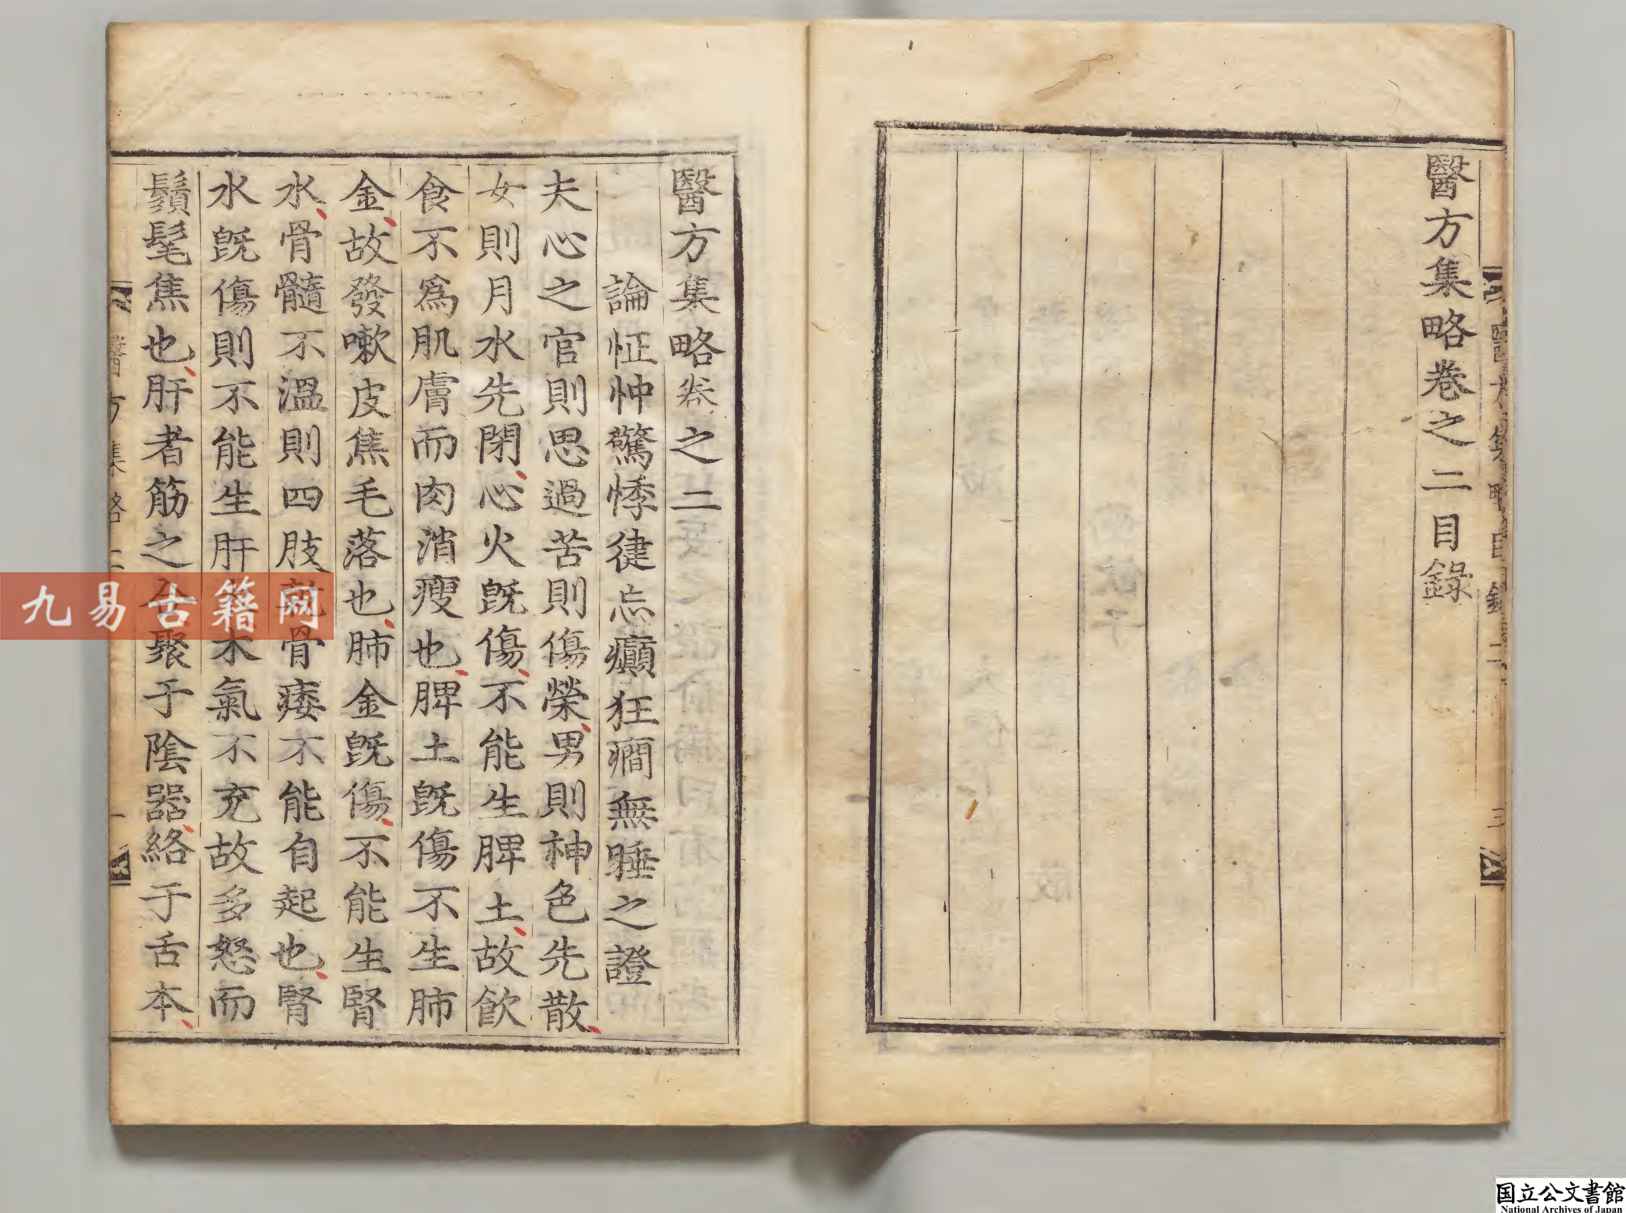 醫方集略卷之二目錄
醫方集略卷之二
論怔忡驚悸健忘癲狂癎無睡之證
夫心之官則思過苦則傷榮男則神色先散
女則月水先閉心火既傷不能生脾土故飲
食不爲肌膚而肉消瘦也脾土既傷不生肺
金故發嗽皮焦毛落也肺金既傷不能生腎
水骨髓不溫則四肢 骨痿不能自起也腎
水既傷則不能生肝木氣不充故多怒而
鬚髦焦也肝者筋之 聚于陰器絡于舌本
九易古籍网
国立公文書館
National Archives of Japan